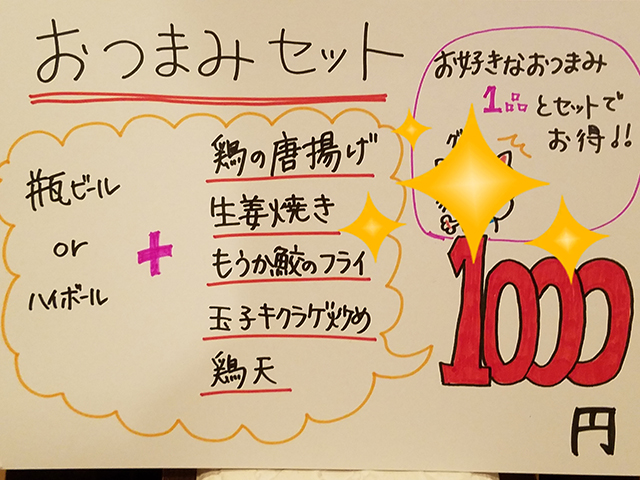 おつまみセット
お好きなおつまみ
1品とセットで
お得!!
瓶ビール
or
ハイボール
+
鶏の唐揚げ
生姜焼き
もうか鮫のフライ
玉子キクラゲ炒め
鶏天
1000
円